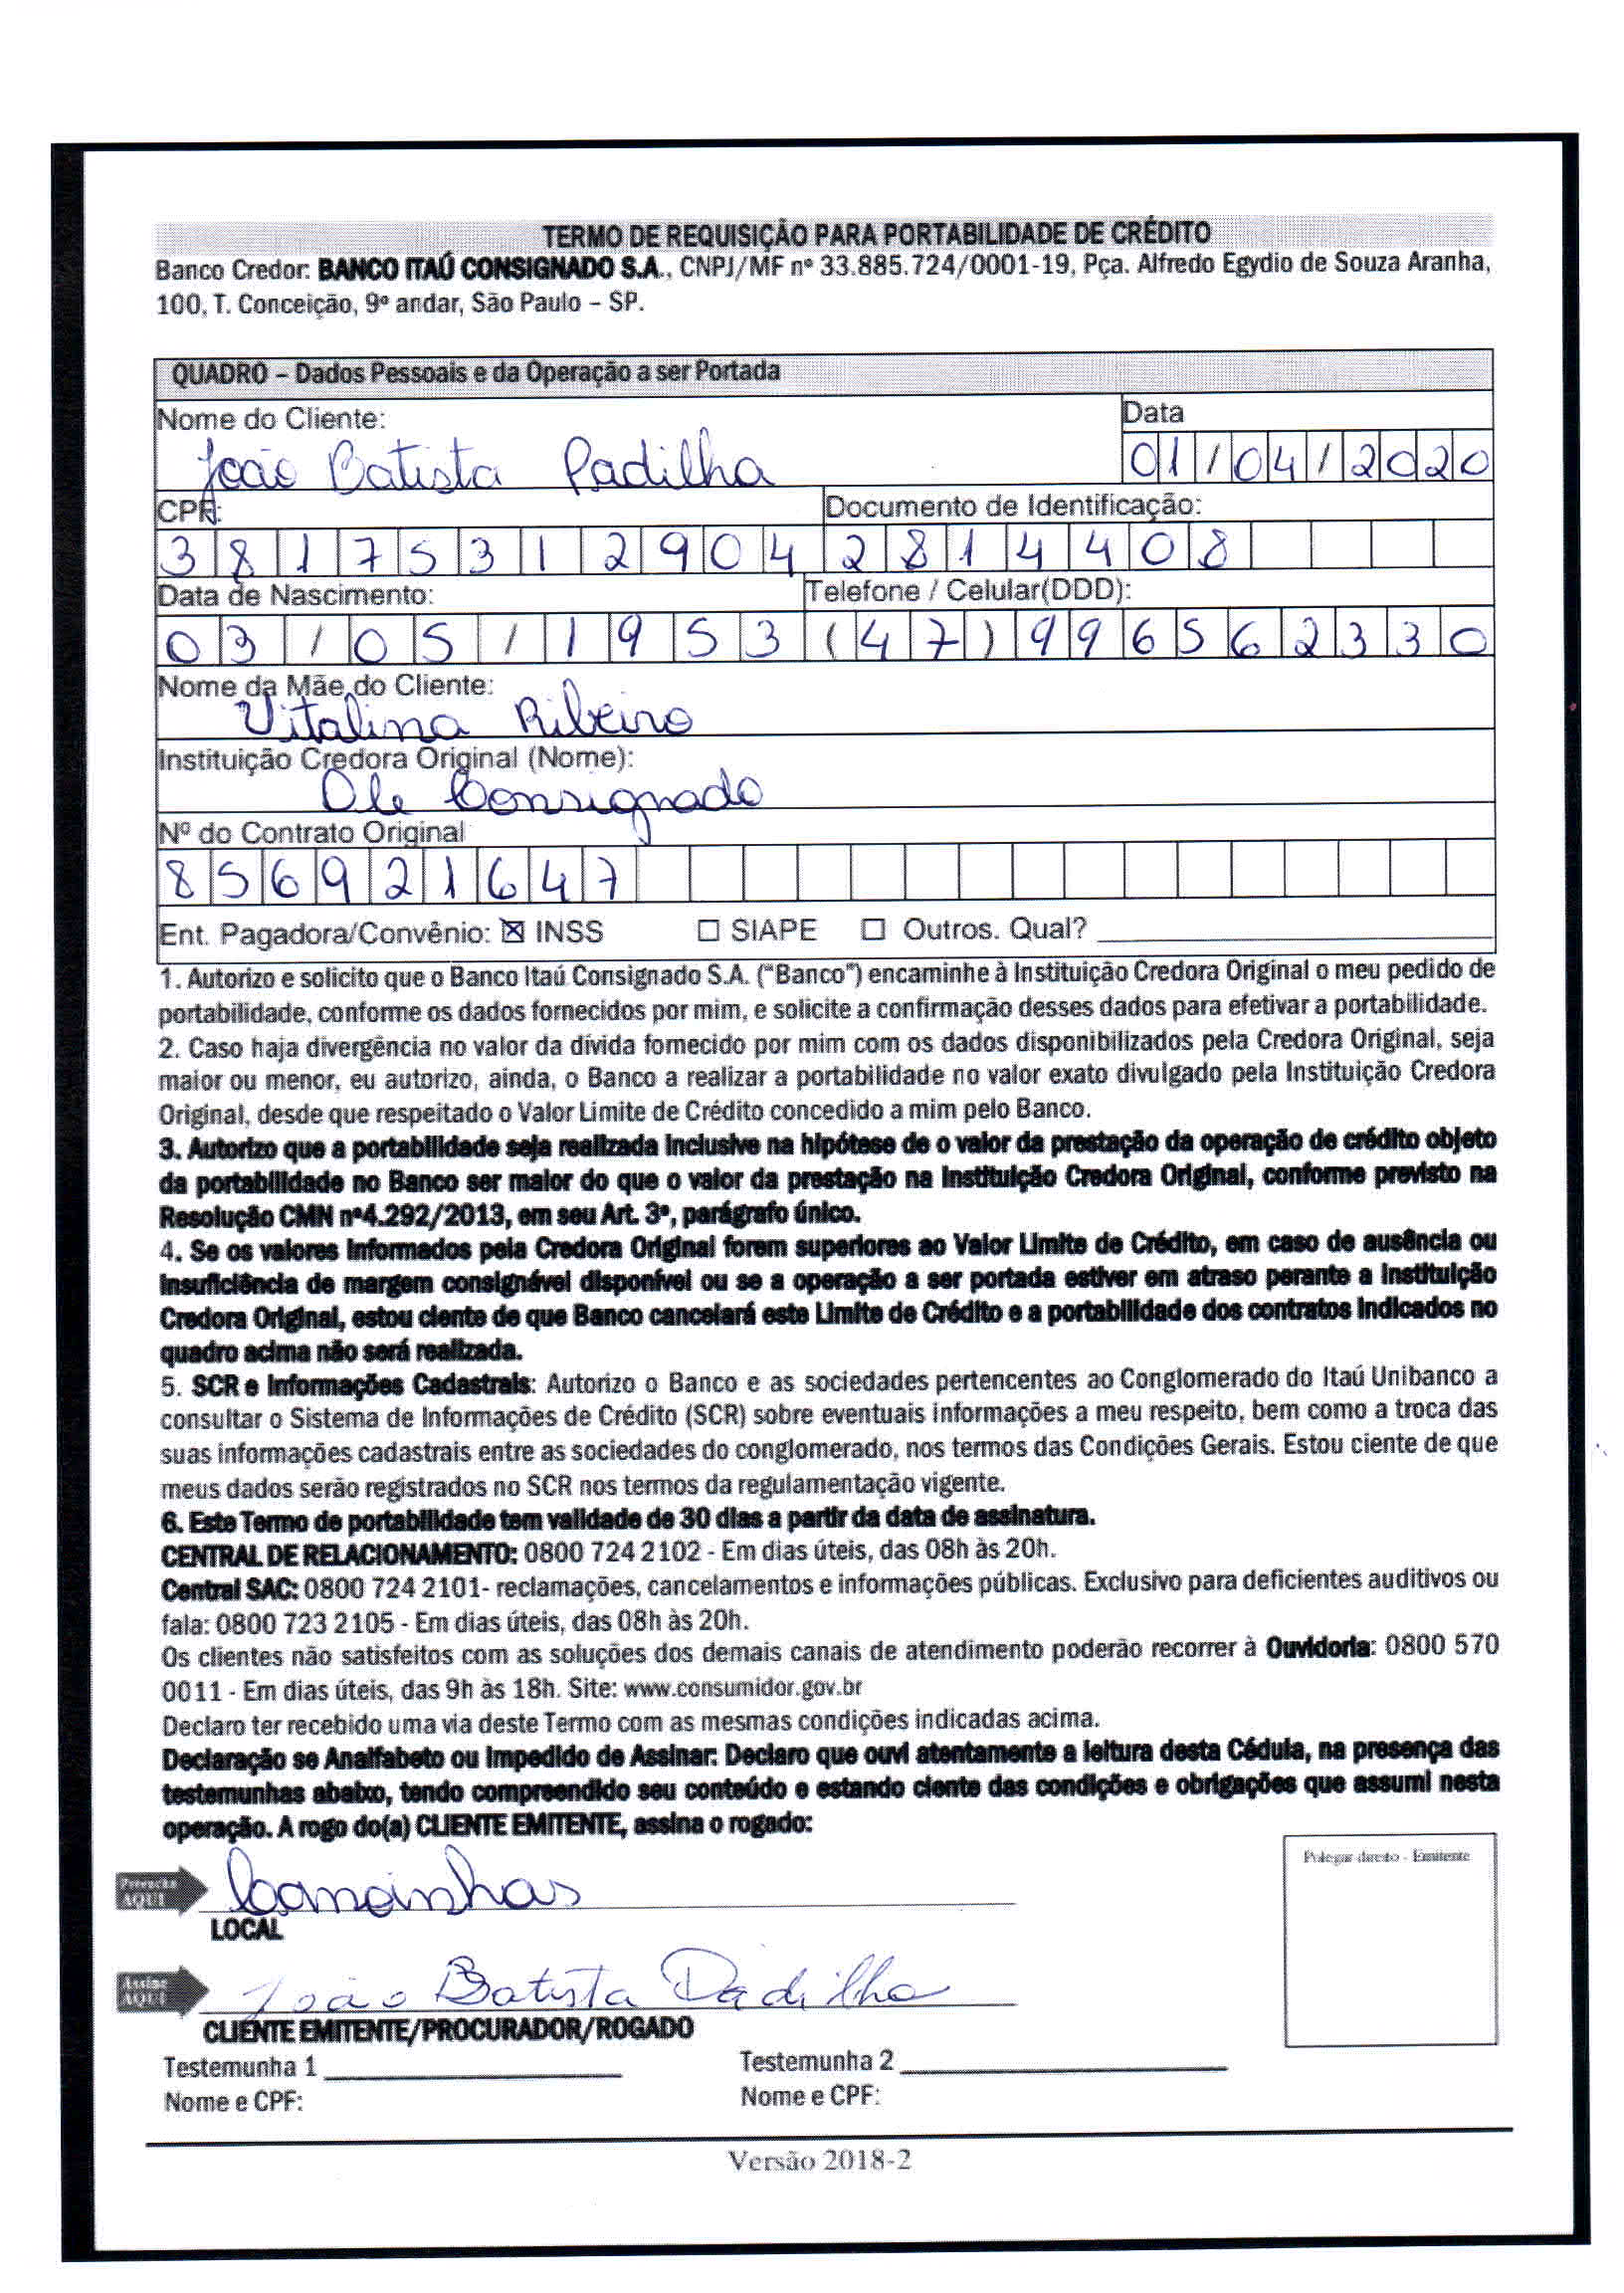 TERMO DE REQUISIÇÃO PARA PORTABILIDADE DE CRÉDITO
Banco Credor: BANCO ITAÚ CONSIGNADO S.A., CNPJ/MF nº 33.885.724/0001-19, Pça. Alfredo Egydio de Souza Aranha,
100, T. Conceição, 9º andar, São Paulo – SP.
QUADRO – Dados Pessoais e da Operação a ser Portada
Nome do Cliente: Data
João Batista Padilha 01/04/2020
CPF: Documento de Identificação:
38175312904 2814408
Data de Nascimento: Telefone / Celular(DDD):
03/05/1953 (47)996562330
Nome da Mãe do Cliente:
Vitalina Ribeiro
Instituição Credora Original (Nome):
Ole Consignado
Nº do Contrato Original
856921647
Ent. Pagadora/Convênio: ☒ INSS ☐ SIAPE ☐ Outros. Qual?
1. Autorizo e solicito que o Banco Itaú Consignado S.A. (“Banco”) encaminhe à Instituição Credora Original o meu pedido de
portabilidade, conforme os dados fornecidos por mim, e solicite a confirmação desses dados para efetivar a portabilidade.
2. Caso haja divergência no valor da dívida fornecido por mim com os dados disponibilizados pela Credora Original, seja
maior ou menor, eu autorizo, ainda, o Banco a realizar a portabilidade no valor exato divulgado pela Instituição Credora
Original, desde que respeitado o Valor Limite de Crédito concedido a mim pelo Banco.
3. Autorizo que a portabilidade seja realizada inclusive na hipótese de o valor da prestação da operação de crédito objeto
da portabilidade no Banco ser maior do que o valor da prestação na Instituição Credora Original, conforme previsto na
Resolução CMN nº4.292/2013, em seu Art. 3º, parágrafo único.
4. Se os valores informados pela Credora Original forem superiores ao Valor Limite de Crédito, em caso de ausência ou
insuficiência de margem consignável disponível ou se a operação a ser portada estiver em atraso perante a Instituição
Credora Original, estou ciente de que Banco cancelará este Limite de Crédito e a portabilidade dos contratos indicados no
quadro acima não será realizada.
5. SCR e Informações Cadastrais: Autorizo o Banco e as sociedades pertencentes ao Conglomerado do Itaú Unibanco a
consultar o Sistema de Informações de Crédito (SCR) sobre eventuais informações a meu respeito, bem como a troca das
suas informações cadastrais entre as sociedades do conglomerado, nos termos das Condições Gerais. Estou ciente de que
meus dados serão registrados no SCR nos termos da regulamentação vigente.
6. Este Termo de portabilidade tem validade de 30 dias a partir da data de assinatura.
CENTRAL DE RELACIONAMENTO: 0800 724 2102 - Em dias úteis, das 08h às 20h.
Central SAC: 0800 724 2101- reclamações, cancelamentos e informações públicas. Exclusivo para deficientes auditivos ou
fala: 0800 723 2105 - Em dias úteis, das 08h às 20h.
Os clientes não satisfeitos com as soluções dos demais canais de atendimento poderão recorrer à Ouvidoria: 0800 570
0011 - Em dias úteis, das 9h às 18h. Site: www.consumidor.gov.br
Declaro ter recebido uma via deste Termo com as mesmas condições indicadas acima.
Declaração se Analfabeto ou Impedido de Assinar: Declaro que ouvi atentamente a leitura desta Cédula, na presença das
testemunhas abaixo, tendo compreendido seu conteúdo e estando ciente das condições e obrigações que assumi nesta
operação. A rogo do(a) CLIENTE EMITENTE, assina o rogado:
Polegar direito - Emitente
Preencha
AQUI
LOCAL
Assine
AQUI João Batista Padilha
CLIENTE EMITENTE/PROCURADOR/ROGADO
Testemunha 1 Testemunha 2
Nome e CPF: Nome e CPF:
Versão 2018-2